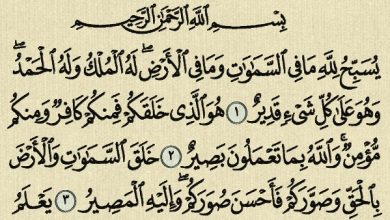 بِسْمِ اللَّهِ الرَّحْمَٰنِ الرَّحِيمِ
يُسَبِّحُ لِلَّهِ مَا فِي السَّمَٰوَٰتِ وَمَا فِي الْأَرْضِ ۖ لَهُ الْمُلْكُ وَلَهُ الْحَمْدُ ۖ
وَهُوَ عَلَىٰ كُلِّ شَيْءٍ قَدِيرٌ ١ هُوَ الَّذِي خَلَقَكُمْ فَمِنكُمْ كَافِرٌ وَمِنكُم
مُّؤْمِنٌ ۚ وَاللَّهُ بِمَا تَعْمَلُونَ بَصِيرٌ ٢ خَلَقَ السَّمَٰوَٰتِ وَالْأَرْضَ
بِالْحَقِّ وَصَوَّرَكُمْ فَأَحْسَنَ صُوَرَكُمْ ۖ وَإِلَيْهِ الْمَصِيرُ ٣ يَعْلَمُ